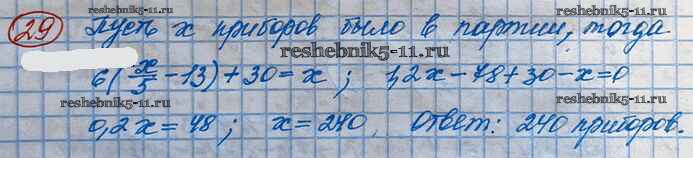 29 Пусть x приборов было в партии, тогда
reshebnik5-11.ru
6(x/5 - 13) + 30 = x ; 1,2x - 78 + 30 - x = 0
reshebnik5-11.ru reshebnik5-11.ru
0,2x = 48 ; x = 240. Ответ: 240 приборов.
reshebnik5-11.ru